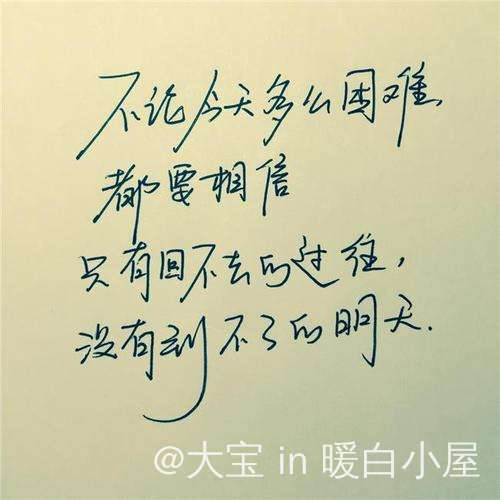 不论今天多么困难,
都要相信
只有回不去的过往,
没有到不了的明天.
@大宝 in 暖白小屋